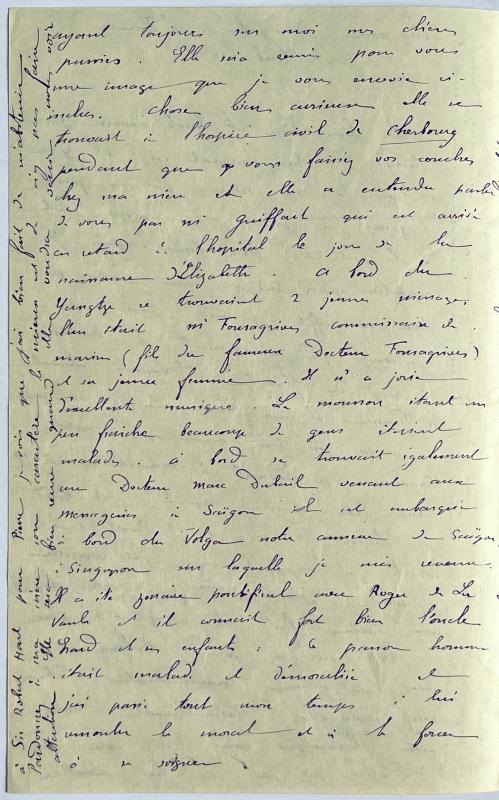 ayant toujours sur moi mes chères
pussies. Elle m'a remis pour vous
une image que je vous envoie ci-
incluse. Chose bien curieuse elle se
trouvait à l'hospice civil de Cherbourg
pendant que vous faisiez vos couches
chez ma mère et elle a entendu parler
de vous par Mr Guiffart qui est arrivé
en retard à l'hopital le jour de la
naissance d'Elizabeth. A bord du
Yangtze se trouvaient 2 jeunes ménages
l'un était Mr Fonsagrives commissaire de
marine (fils du fameux Docteur Fonsagrives)
et sa jeune femme. Il m'a joué
d'excellente musique. La mousson étant un
peu fraîche beaucoup de gens étaient
malades. à bord se trouvait également
un Docteur Marc venant aux
messageries à Saïgon et est embarqué
à bord du Volga notre annexe de Saïgon
Singapour sur laquelle je suis revenu.
Il a été zouave pontifical avec Roger de La
et il connait fort bien l'oncle
et ses enfants : le pauvre homme
était malade et démoralisé et
j'ai passé tout mon temps à lui
remonter le moral et à le forcer
à se soigner
à Sir Robert Hart pour Pierre je vois que j'ai bien fait de m'abstenir
Pardonnez à ma mère son caractère le mieux est de n'y pas faire
attention. Elle sera bien venue quand elle voudra venir nous voir